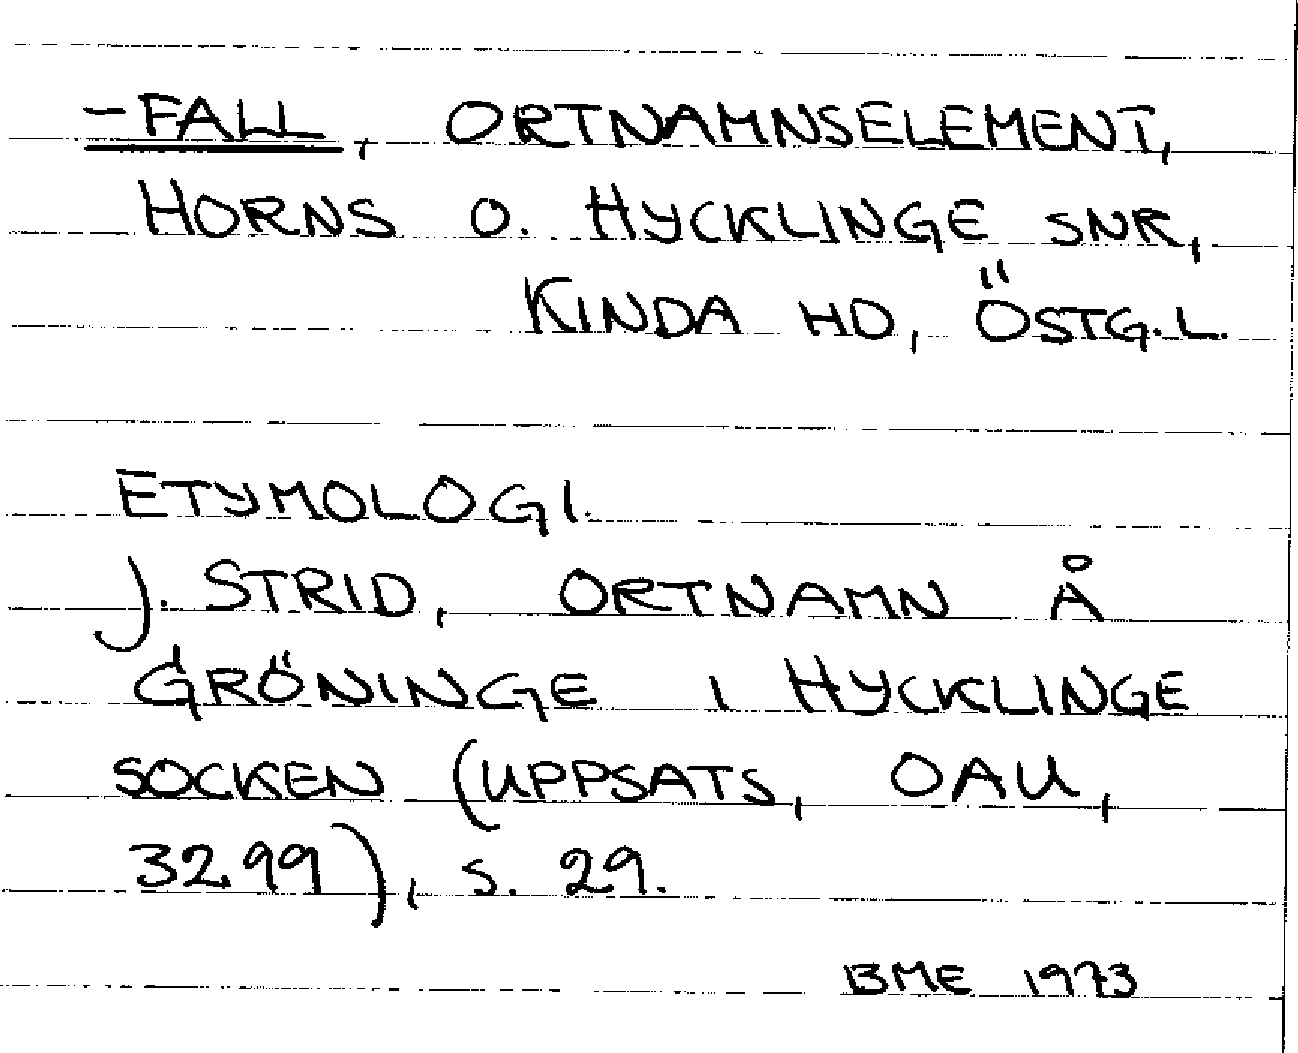 -FALL, ORTNAMNSELEMENT,
HORNS O. HYCKLINGE SNR,
KINDA HD, ÖSTG.L.
ETYMOLOGI.
J. STRID, ORTNAMN Å
GRÖNINGE I HYCKLINGE
SOCKEN (UPPSATS, OAU,
3299), S. 29.
BME 1973